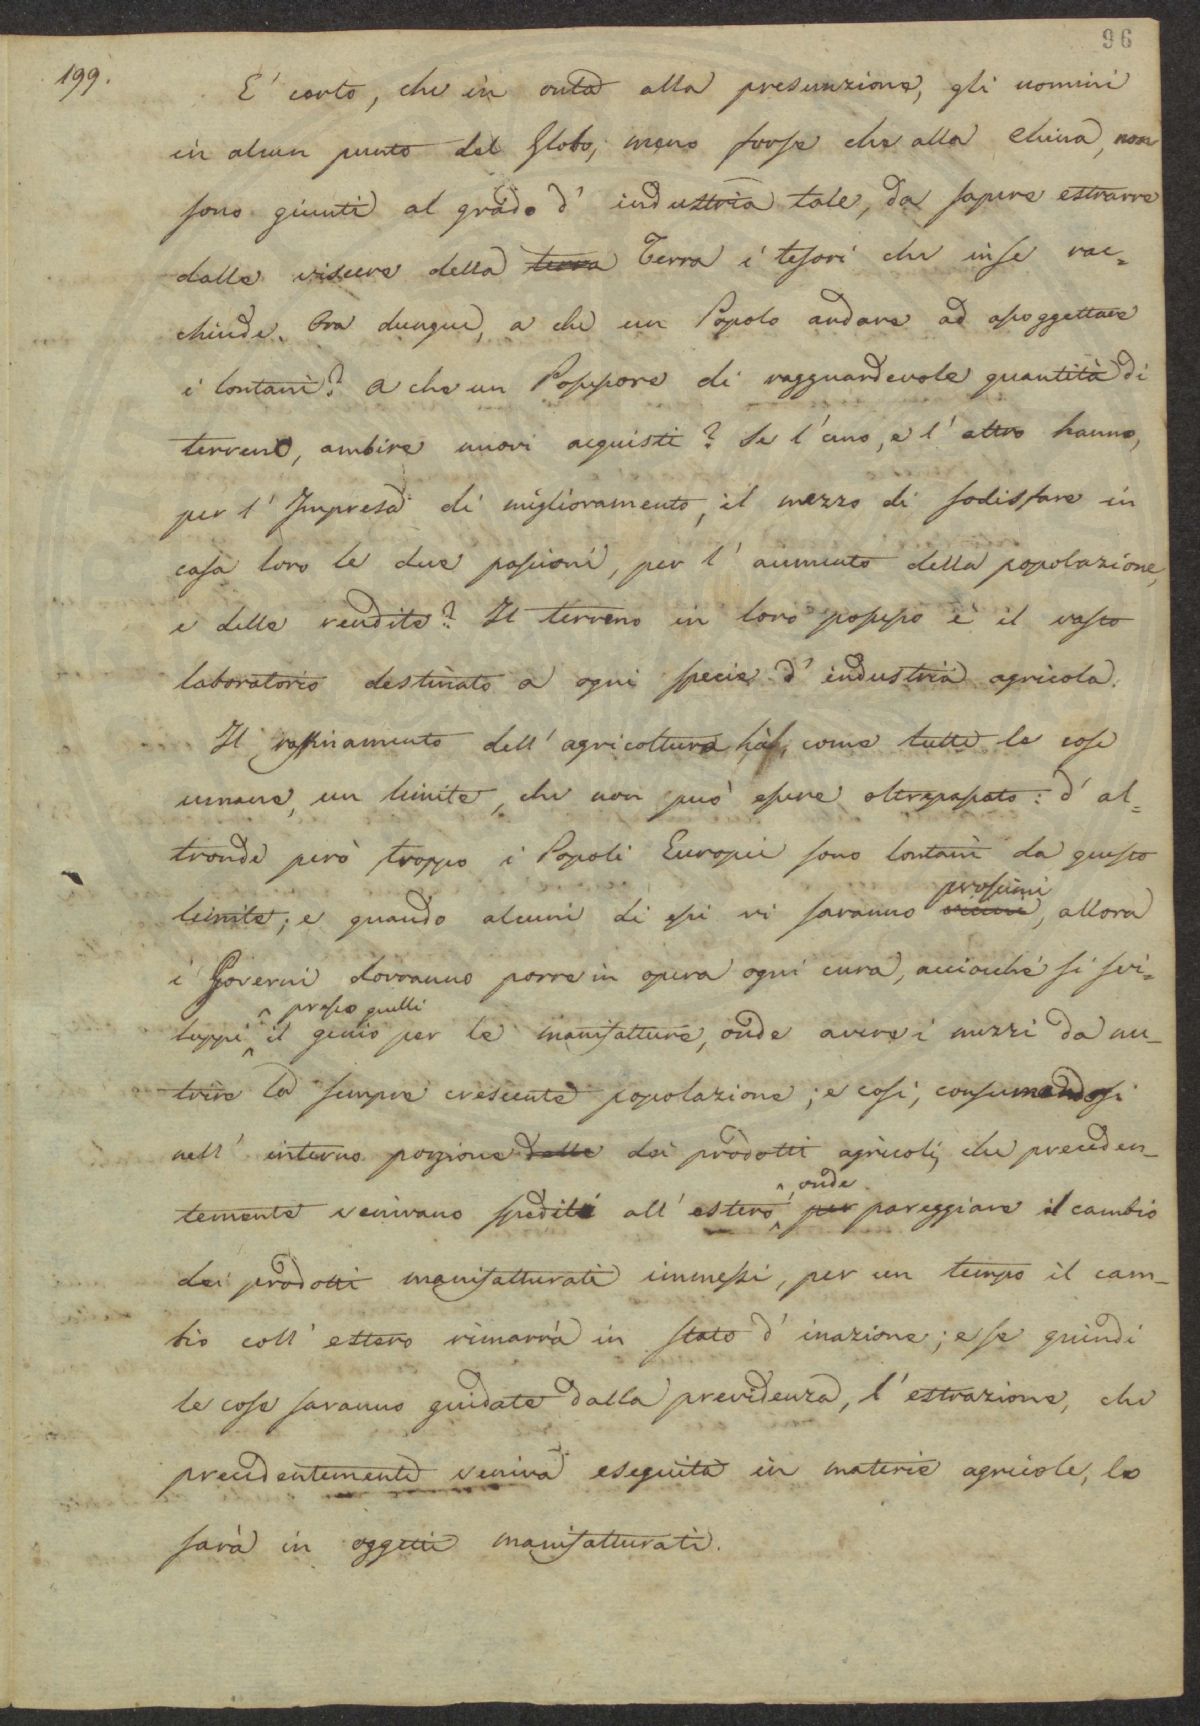 96
199.
E' certo, che in onta alla presunzione, gli uomini
in alcun punto del Globo, meno forse che alla China, non
sono giunti al grado d' industria tale, da sapere estrarre
dalle viscere della terra Terra i tesori che in se rac=
chiude. Ora dunque, a che un Popolo andare ad assoggettare
i lontani? a che un Possessore di ragguardevole quantità di
terreno, ambire nuovi acquisti? Se l' uno, e l' altro hanno,
per l' Impresa di miglioramento, il mezzo di sodisfare in
casa loro le due passioni, per l' aumento della popolazione,
e delle rendite? Il terreno in loro possesso è il vasto
laboratorio destinato a ogni specie d' industria agricola.
Il raffinamento dell' agricoltura hà, come tutte le cose
umane, un limite, che non può essere oltrepassato: d' al=
tronde però troppo i Popoli Europei sono lontani da questo
prossimi
limite; e quando alcuni di essi vi saranno vicini, allora
i Governi dovranno porre in opera ogni cura, acciocché si svi=
presso quelli
luppi il genio per le manifatture, onde avere i mezzi da nu=
trire la sempre crescente popolazione; e così, consumandosi
nell' interno porzione delle dei prodotti agricoli, che preceden=
, onde
temente venivano spediti all' estero per pareggiare il cambio
dei prodotti manifatturati immessi, per un tempo il cam=
bio coll' estero rimarrà in stato d' inazione; e se quindi
le cose saranno guidate dalla previdenza, l' estrazione, che
precedentemente veniva eseguita in materie agricole, lo
sarà in oggetti manifatturati.